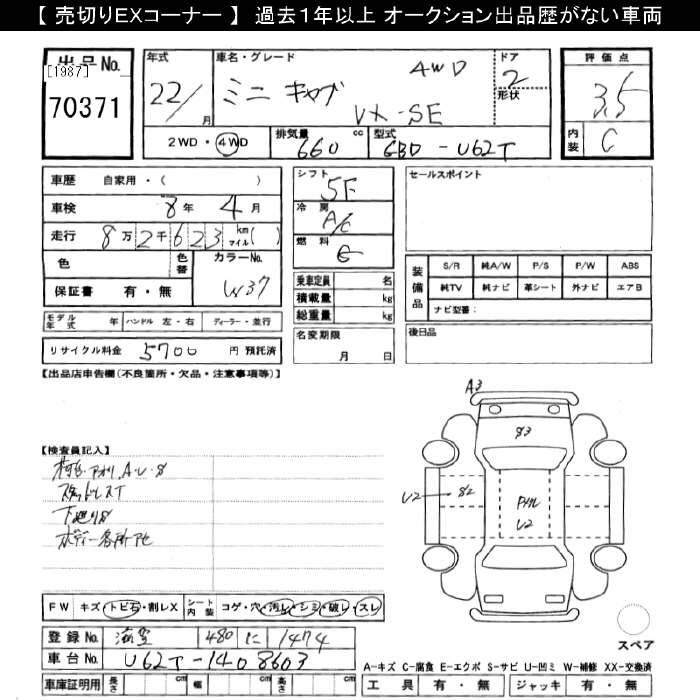 【 売切りEXコーナー 】 過去1年以上 オークション出品歴がない車両
出品No.
[1987]
70371
年式
22/
月
車名・グレード
ミニキャブ
4WD
VX-SE
ドア
2
形状
評価点
3.5
内装
C
2WD・4WD
排気量
660
cc
型式
GBD-U62T
車歴 自家用・( )
車検 8年 4月
走行 8万2千623 km マイル( )
色
色番
カラーNo.
W37
保証書 有・無
モデル年式 年
ハンドル 左・右
ディーラー・並行
リサイクル料金 5700 円 預託済
シフト
5F
冷房
A/C
燃料
G
乗車定員 名
積載量 kg
総重量 kg
名変期限
月 日
セールスポイント
装備品
S/R 純A/W P/S P/W ABS
純TV 純ナビ 革シート 外ナビ エアB
ナビ型番:
後日品
【出品店申告欄(不良箇所・欠品・注意事項等)】
【検査員記入】
スタッドレスT
下廻りS
ボディー各所
A3
S3
U2
S2
U2
FW キズ・トビ石・割レX
シート内装 コゲ・穴・汚レ・シミ・破レ・スレ
登録No. 480 に 1474
車台No. U62T-1408603
車庫証明用 長さ cm 幅 cm 高さ cm
スペア
A-キズ C-腐食 E-エクボ S-サビ U-凹ミ W-補修 XX-交換済
工具 有・無 ジャッキ 有・無